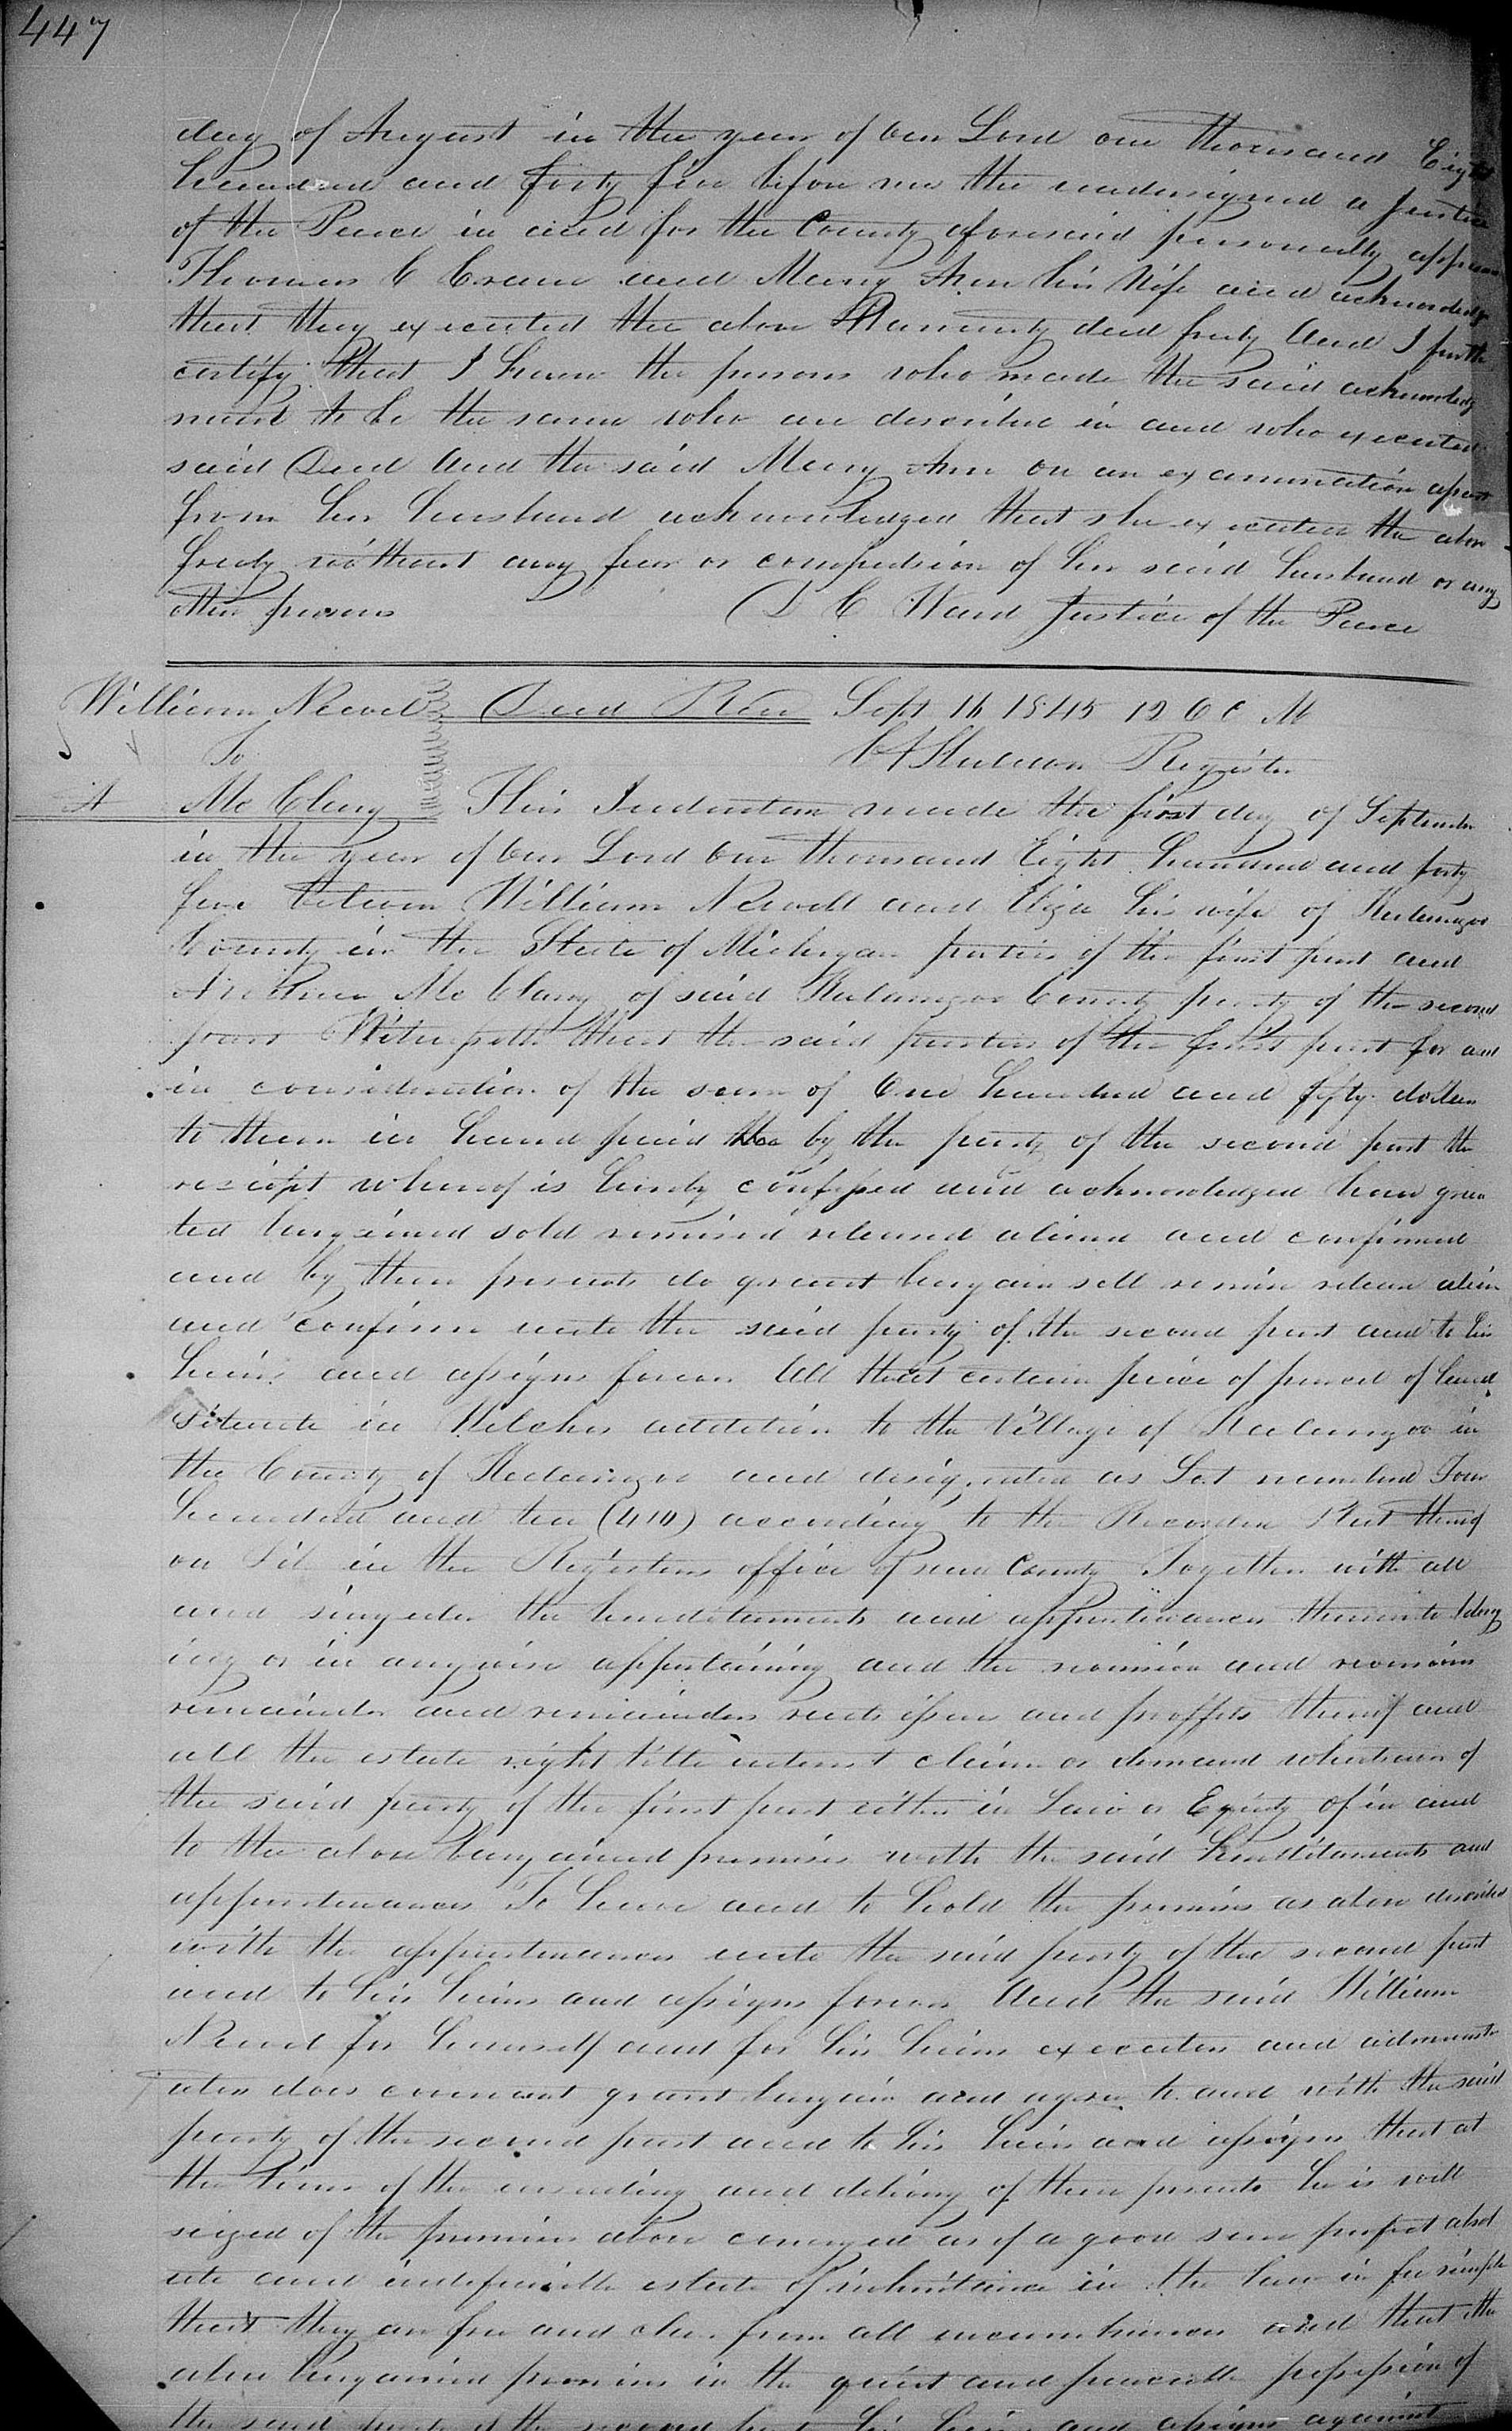 447
day of August in the year of our Lord one thousand Eight
hundred and forty five before me the undersigned a Justice
of the Peace in and for the County aforesaid personally appeared
Thomas C Crane and Mary Ann his Wife and acknowledge
that they executed the above Warranty deed freely And I furth
certify that I know the persons who made the said acknowledg
ment to be the same who are described in and who executed
said Deed And the said Mary Ann on an examination apart
from her husband acknowledged that she executed the above
freely without any fear or compulsion of her said husband or any
other persons
D C Ward Justice of the Peace
William Newel Deed Rec Sept 16 1845 12 O C M
To Register
A McClary This Indenture made the first day of September
in the year of Our Lord One thousand Eight hundred and forty
five between William Newell and Eliza his wife of Kalamazoo
County in the State of Michigan parties of the first part and
McClary of said Kalamazoo County party of the second
part Witnesseth that the said parties of the first part for and
in consideration of the sum of One hundred and fifty dollars
to them in hand paid by the party of the second part the
receipt whereof is hereby confessed and acknowledged have gran
ted bargained sold remised released aliened and confirmed
and by these presents do grant bargain sell remise release alien
and confirm unto the said party of the second part and to his
heirs and assigns forever All that certain piece of parcel of land
situate in addition to the Village of Kalamazoo in
the County of Kalamazoo and designated as Lot numbered Four
hundred and ten (410) according to the Recorded Plat thereof
on File in the Registers office of said County Together with all
and singular the hereditaments and appurtenances thereunto belong
ing or in anywise appertaining and the reversion and reversions
remainder and remainders rents issues and proffits thereof and
all the estate right title interest claim or demand whatsoever of
the said party of the first part either in Law or Equity of in and
to the above bargained premises with the said hereditaments and
appurtenances To have and to hold the premises as above described
with the appurtenances unto the said party of the second part
and to his heirs and assigns forever And the said William
Newel for himself and for his heirs executors and administr
ators does covenant grant bargain and agree to and with the said
party of the second part and to his heirs and assigns that at
the time of the ensealing and delivery of these presents he is well
seized of the premises above conveyed as of a good sure perfect absol
ute and indefeasible estate of inheritance in the law in fee simple
that they are free and clear from all incumbrances and that the
above bargained premises in the quiet and peaceable possession of
the said party of the second part his heirs and assigns against